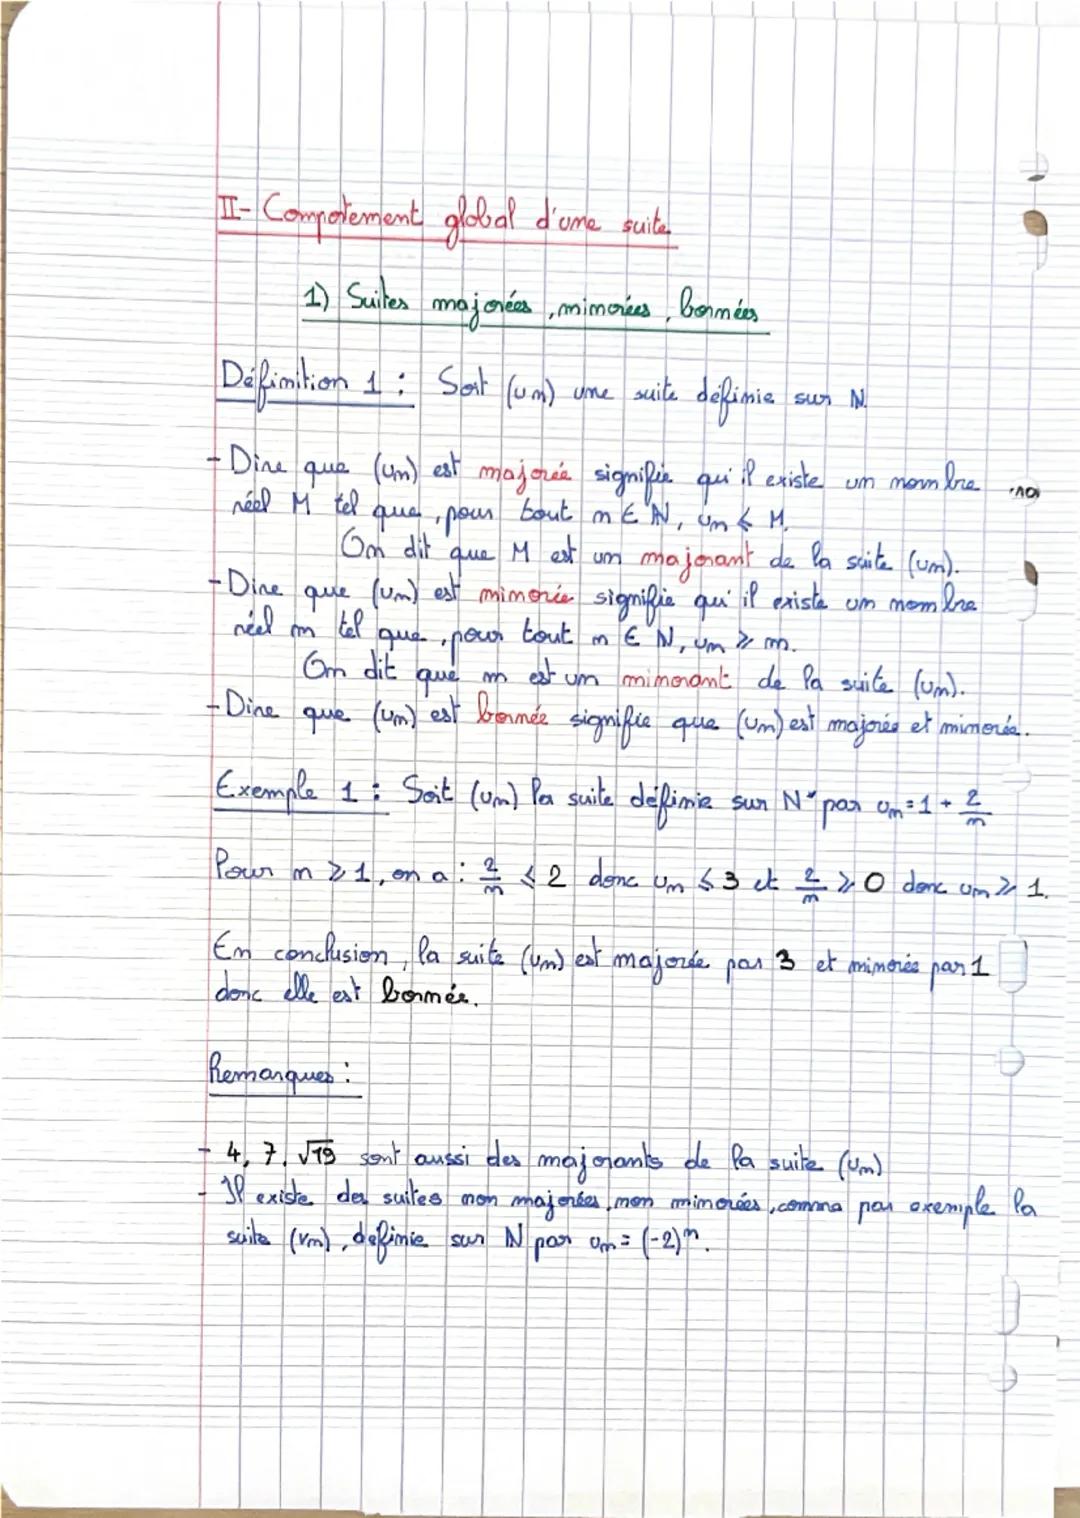 II- Comportement global d'une suite
1) Suites majorées, minorées, bornées
Définition 1 : Soit (un) une suite définie sur N.
- Dire que (un) est majorée signifie qu'il existe un nombre
réel M tel que, pour tout n ∈ N, un ≤ M.
On dit que M est un majorant de la suite (un).
- Dire que (un) est minorée signifie qu'il existe un nombre
réel m tel que, pour tout n ∈ N, un ≥ m.
On dit que m est un minorant de la suite (un).
- Dire que (un) est bornée signifie que (un) est majorée et minorée.
Exemple 1 : Soit (un) la suite définie sur N* par un = 1 + 2/n
Pour n ≥ 1, on a : 2/n ≤ 2 donc un ≤ 3 et 2/n ≥ 0 donc un ≥ 1.
En conclusion, la suite (un) est majorée par 3 et minorée par 1
donc elle est bornée.
Remarques :
- 4, 7, √19 sont aussi des majorants de la suite (un)
- Il existe des suites non majorées, non minorées, comme par exemple la
suite (vn), définie sur N par un = (-2)^n.